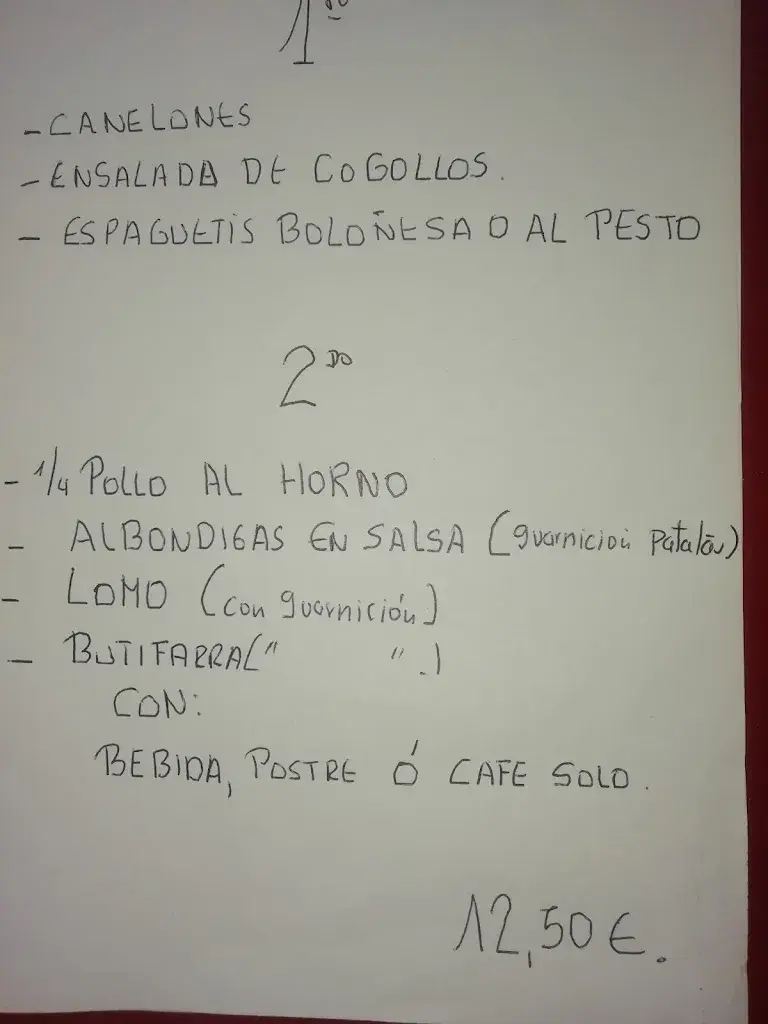 1º
- CANELONES
- ENSALADA DE COGOLLOS.
- ESPAGUETIS BOLOÑESA O AL PESTO
2DO
- 1/4 POLLO AL HORNO
- ALBONDIGAS EN SALSA (guarnición
- LOMO (con guarnición)
- BUTIFARRA (" ".)
CON:
BEBIDA, POSTRE Ó CAFE SOLO.
12,50 €.